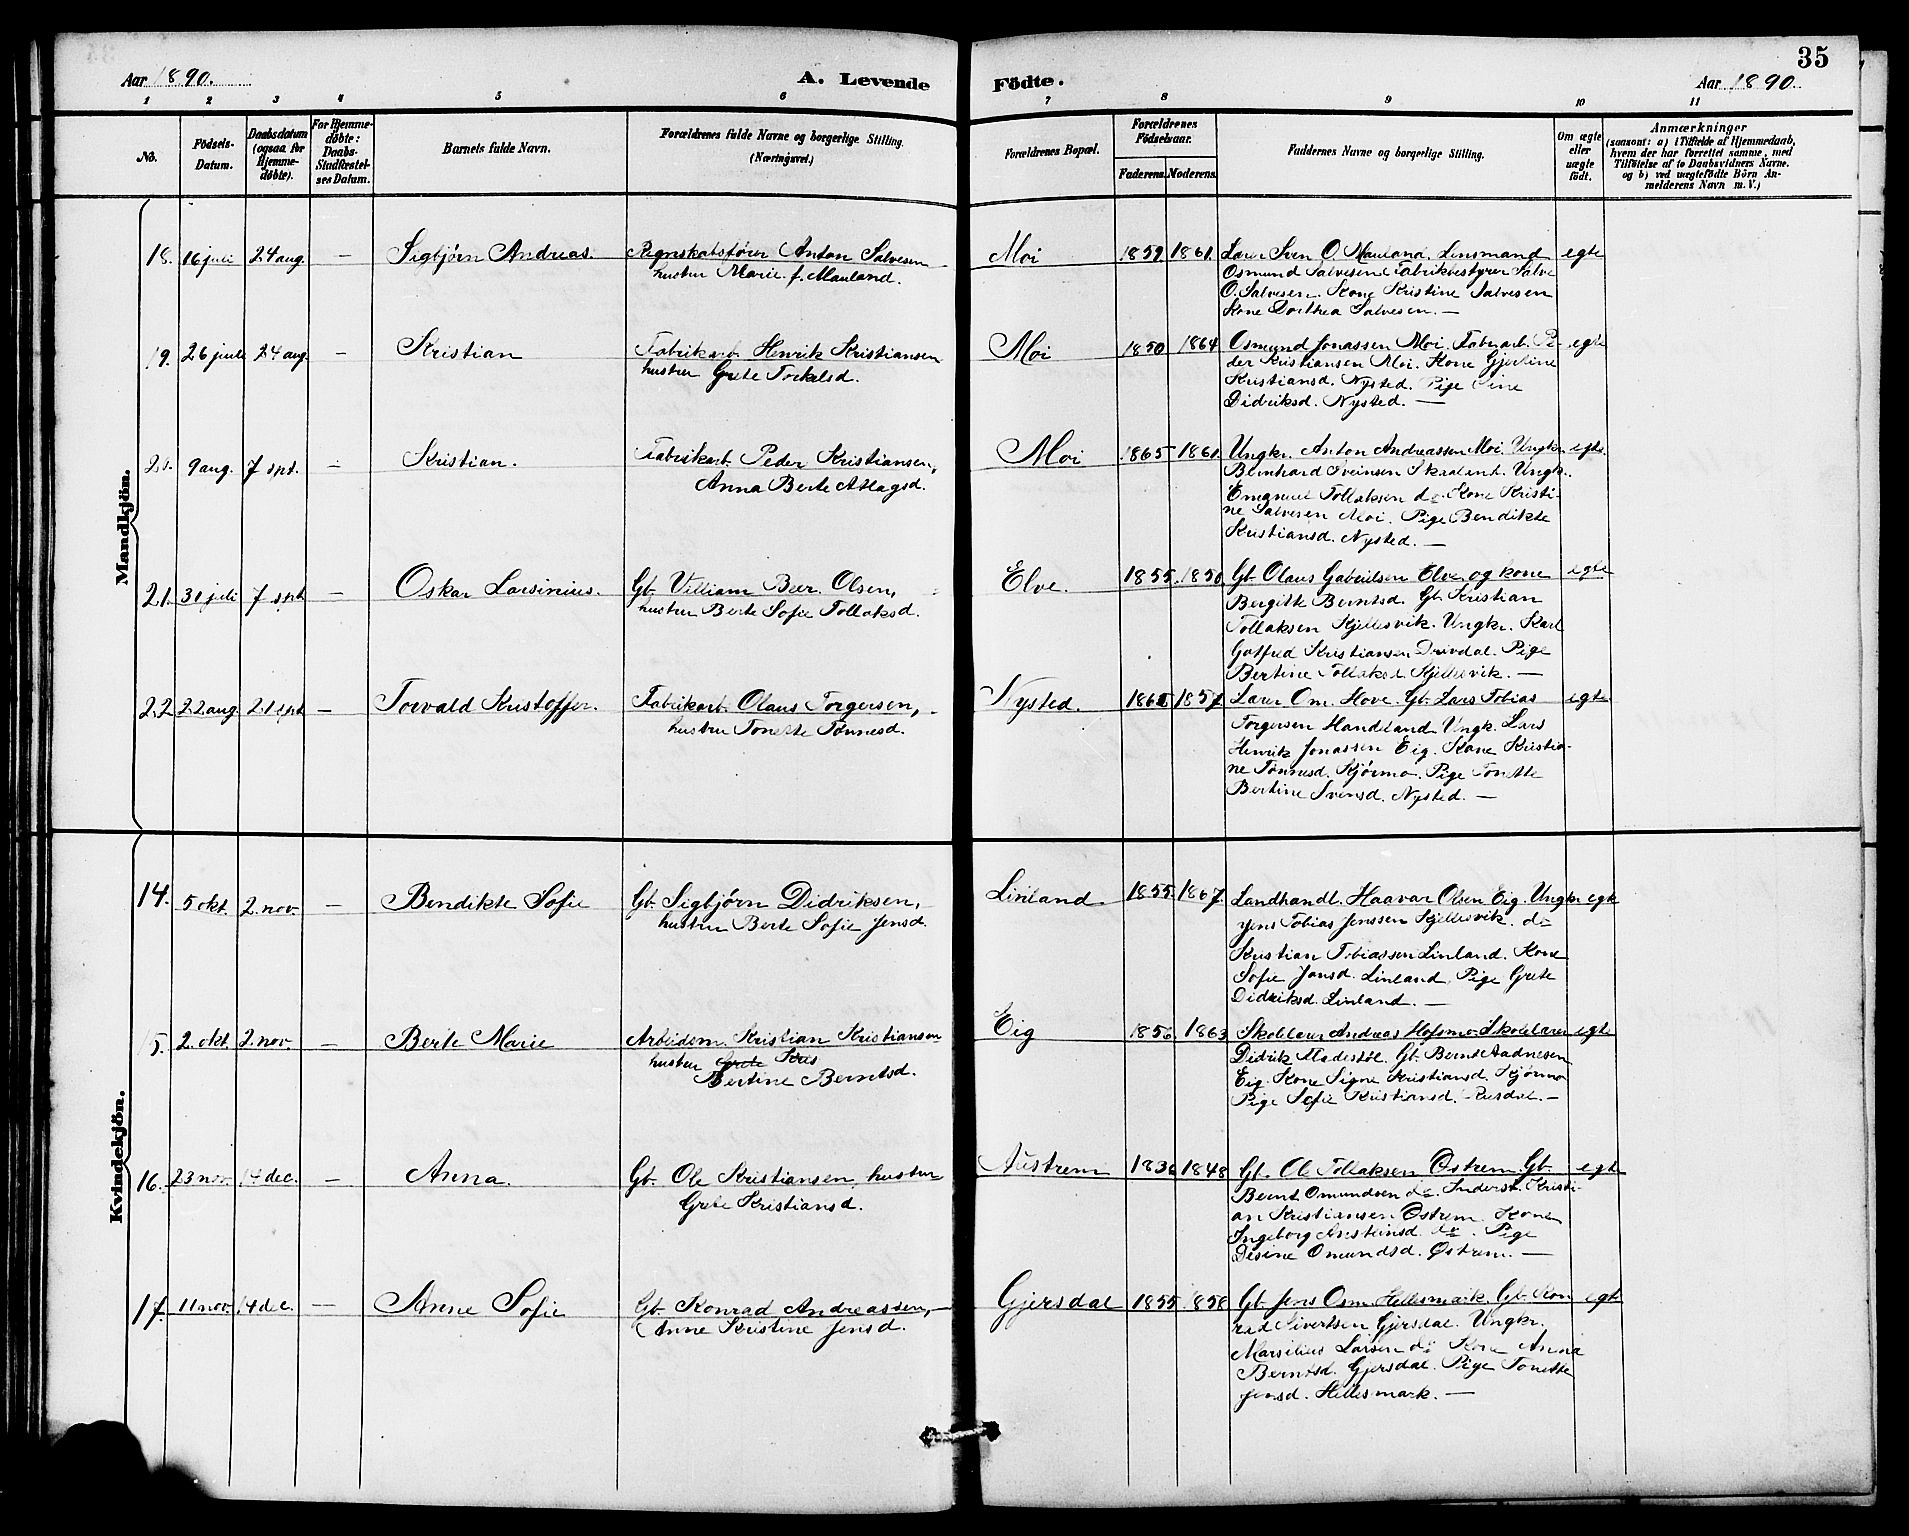 35
Aar 1890.
A. Levende
Födte.
Aar 1890.
1 2 3 4 5 6 7 8 9 10 11
No.
Födsels-Datum.
Daabsdatum (ogsaa for Hjemme-döbte).
For Hjemme-döbte: Daabs-Stadfæstel-ses Datum.
Barnets fulde Navn.
Forældrenes fulde Navne og borgerlige Stilling. (Næringsvei.)
Forældrenes Bopæl.
Forældrenes Födselsaar.
Faderens. Moderens.
Faddernes Navne og borgerlige Stilling.
Om ægte eller uægte födt.
Anmærkninger
(saasom: a) i Tilfælde af Hjemmedaab,
hvem der har forrettet samme, med
Tilföielse af to Daabsvidners Navne.
og b) ved uægtefödte Börn An-
melderens Navn m. V.)
Mandkjön.
18. 16 juli 24 aug. — Sigbjørn Andreas. Regnskabsfører Anton Salvesen
hustru Marie f. Mauland.
Moi 1859 1861. Lærer Sven O. Mauland. Lensmand egte
Osmund Salvesen Fabrikbestyrer Salve
O. Salvesen. Kone Kristine Salvesen
Kone Dorthea Salvesen. —
19. 26 juli 24 aug. — Kristian Fabrikarb. Henrik Kristiansen
hustru Grete Torkelsd.
Moi 1850 1864 Osmund Jonassen Moi. Fabr.arb. Pe- egte
der Kristiansen Moi. Kone Gjertine
Kristiansd. Nysted. Pige Sine
Didriksd. Nysted. —
20. 9 aug. 7 spt. — Kristian. Fabrikarb. Peder Kristiansen,
Anna Berte Atlagsd.
Moi 1865 1861. Ungkr. Anton Andreassen Moi. Ungkr. egte
Bernhard Sveinsen Ungk.
Emanuel Tollaksen do. Kone Kristi-
ne Salvesen Moi. Pige Bendikte
Kristiansd. Nysted. —
21. 31 juli 7 spt — Oskar Larsinius. Gb. Villiam Beer Olsen,
hustru Berte Sofie Tollaksd.
Elve. 1855. 1850. Gb. Olaus Gabrielsen Elve og kone egte
Bergitte Berntsd. Gb. Kristian
Tollaksen Kjellesvik. Ungkr. Karl
Gotfred Kristiansen Drivdal. Pige
Bertine Tollaksd. Kjellesvik. —
22 22 aug 21 spt — Torvald Kristoffer. Fabrikarb. Olaus Torgersen,
hustru Tonette Tønnesd.
Nysted. 1857 Lærer Om. Hove. Gb. Lars Tobias egte
Torgersen Handeland. Ungk. Lars
Henrik Jonassen Eig. Kone Kristia-
ne Tønnesd. Kjørmo. Pige Tonette
Bertine Svensd. Nysted. —
Kvindekjön.
14. 5 okt. 2. nov. — Bendikte Sofie Gb. Sigbjørn Didriksen,
hustru Berte Sofie Jensd.
Linland 1855 1867. Landhandl. Haavar Olsen Eig. Ungkr egte
Jens Tobias Jenssen Kjellesvik. do
Kristian Tobiassen Linland. Kone
Sofie Jonsd. Linland. Pige Grete
Didriksd. Linland. —
15. 2. okt 2. nov. — Berte Marie Arbeidsm. Kristian Kristiansen
hustru Grete Kris
Bertine Berntsd.
Eig 1856 1863 Skolelærer Andreas Hofsmo. Skolelærer egte
Didrik Gb. Bernt Aadnesen
Eig. Kone Signe Kristiansd. Kjørmo
Pige Sofie Kristiansd. Rusdal. —
16. 23 nov. 14 dec. — Anna. Gb. Ole Kristiansen, hustru
Grete Kristiansd.
Austrem 1836 1848 Gb. Ole Tollaksen Østrem. Gb. egte
Bernt Omundsen do. Inderst. Kristi-
an Kristiansen Østrem. Kone
Ingeborg Aresteinsd. do. Pige
Desine Omundsd. Østrem. —
17. 11 nov. 14 dec. — Anne Sofie Gb. Konrad Andreassen, —
Anne Kristine Jensd.
Gjersdal 1855 1858 Gb. Jens Osm. Hellesmark. Gb. Kon egte
rad Sivertsen Gjersdal. Ungkr.
Marsilius Larsen do. Kone Anna
Berntsd. Gjersdal. Pige Tonette
Jensd. Hellesmark. —